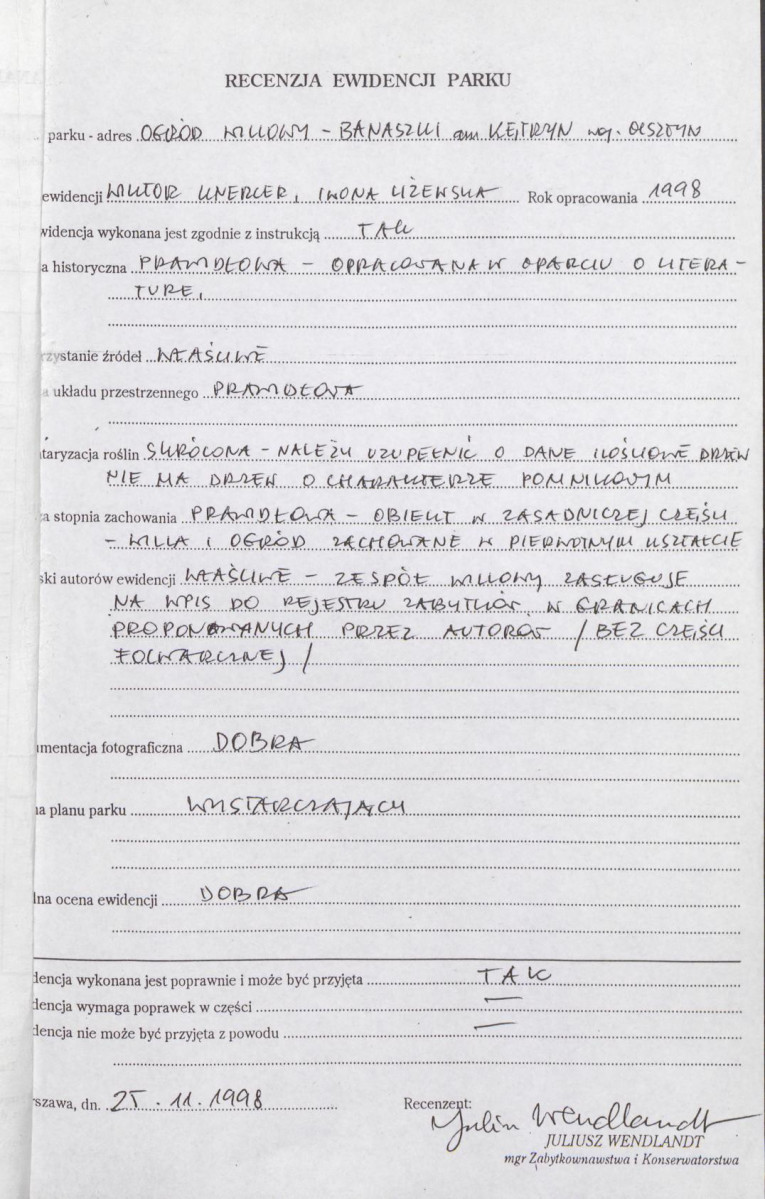 RECENZJA EWIDENCJI PARKU
parku - adres OGRÓD WILLOWY - BANASZKI gm KĘTRZYN woj. OLSZTYN
ewidencji WIKTOR KNERCER, IWONA LIŻEWSKA Rok opracowania 1998
widencja wykonana jest zgodnie z instrukcją TAK
a historyczna PRAWIDŁOWA - OPRACOWANA W OPARCIU O LITERA-
TURĘ,
zystanie źródeł WŁAŚCIWE
a układu przestrzennego PRAWIDŁOWA
taryzacja roślin SKRÓCONA - NALEŻY UZUPEŁNIĆ O DANE ILOŚCIOWE DRZEW
NIE MA DRZEW O CHARAKTERZE POMNIKOWYM
a stopnia zachowania PRAWIDŁOWA - OBIEKT W ZASADNICZEJ CZĘŚCI
- WILLA I OGRÓD ZACHOWANE W PIERWOTNYM KSZTAŁCIE
ski autorów ewidencji WŁAŚCIWE - ZESPÓŁ WILLOWY ZASŁUGUJE
NA WPIS DO REJESTRU ZABYTKÓW, W GRANICACH
PROPONOWANYCH PRZEZ AUTORÓW / BEZ CZĘŚCI
FOLWARCZNEJ /
mentacja fotograficzna DOBRA
na planu parku WYSTARCZAJĄCY
lna ocena ewidencji DOBRA
dencja wykonana jest poprawnie i może być przyjęta TAK
dencja wymaga poprawek w części —
dencja nie może być przyjęta z powodu —
rszawa, dn. 25.11.1998 Recenzent:
Juliu Wendlandt
JULIUSZ WENDLANDT
mgr Zabytkownawstwa i Konserwatorstwa